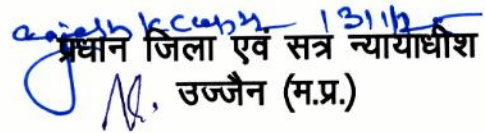 प्रधान जिला एवं सत्र न्यायाधीश
उज्जैन (म.प्र.)